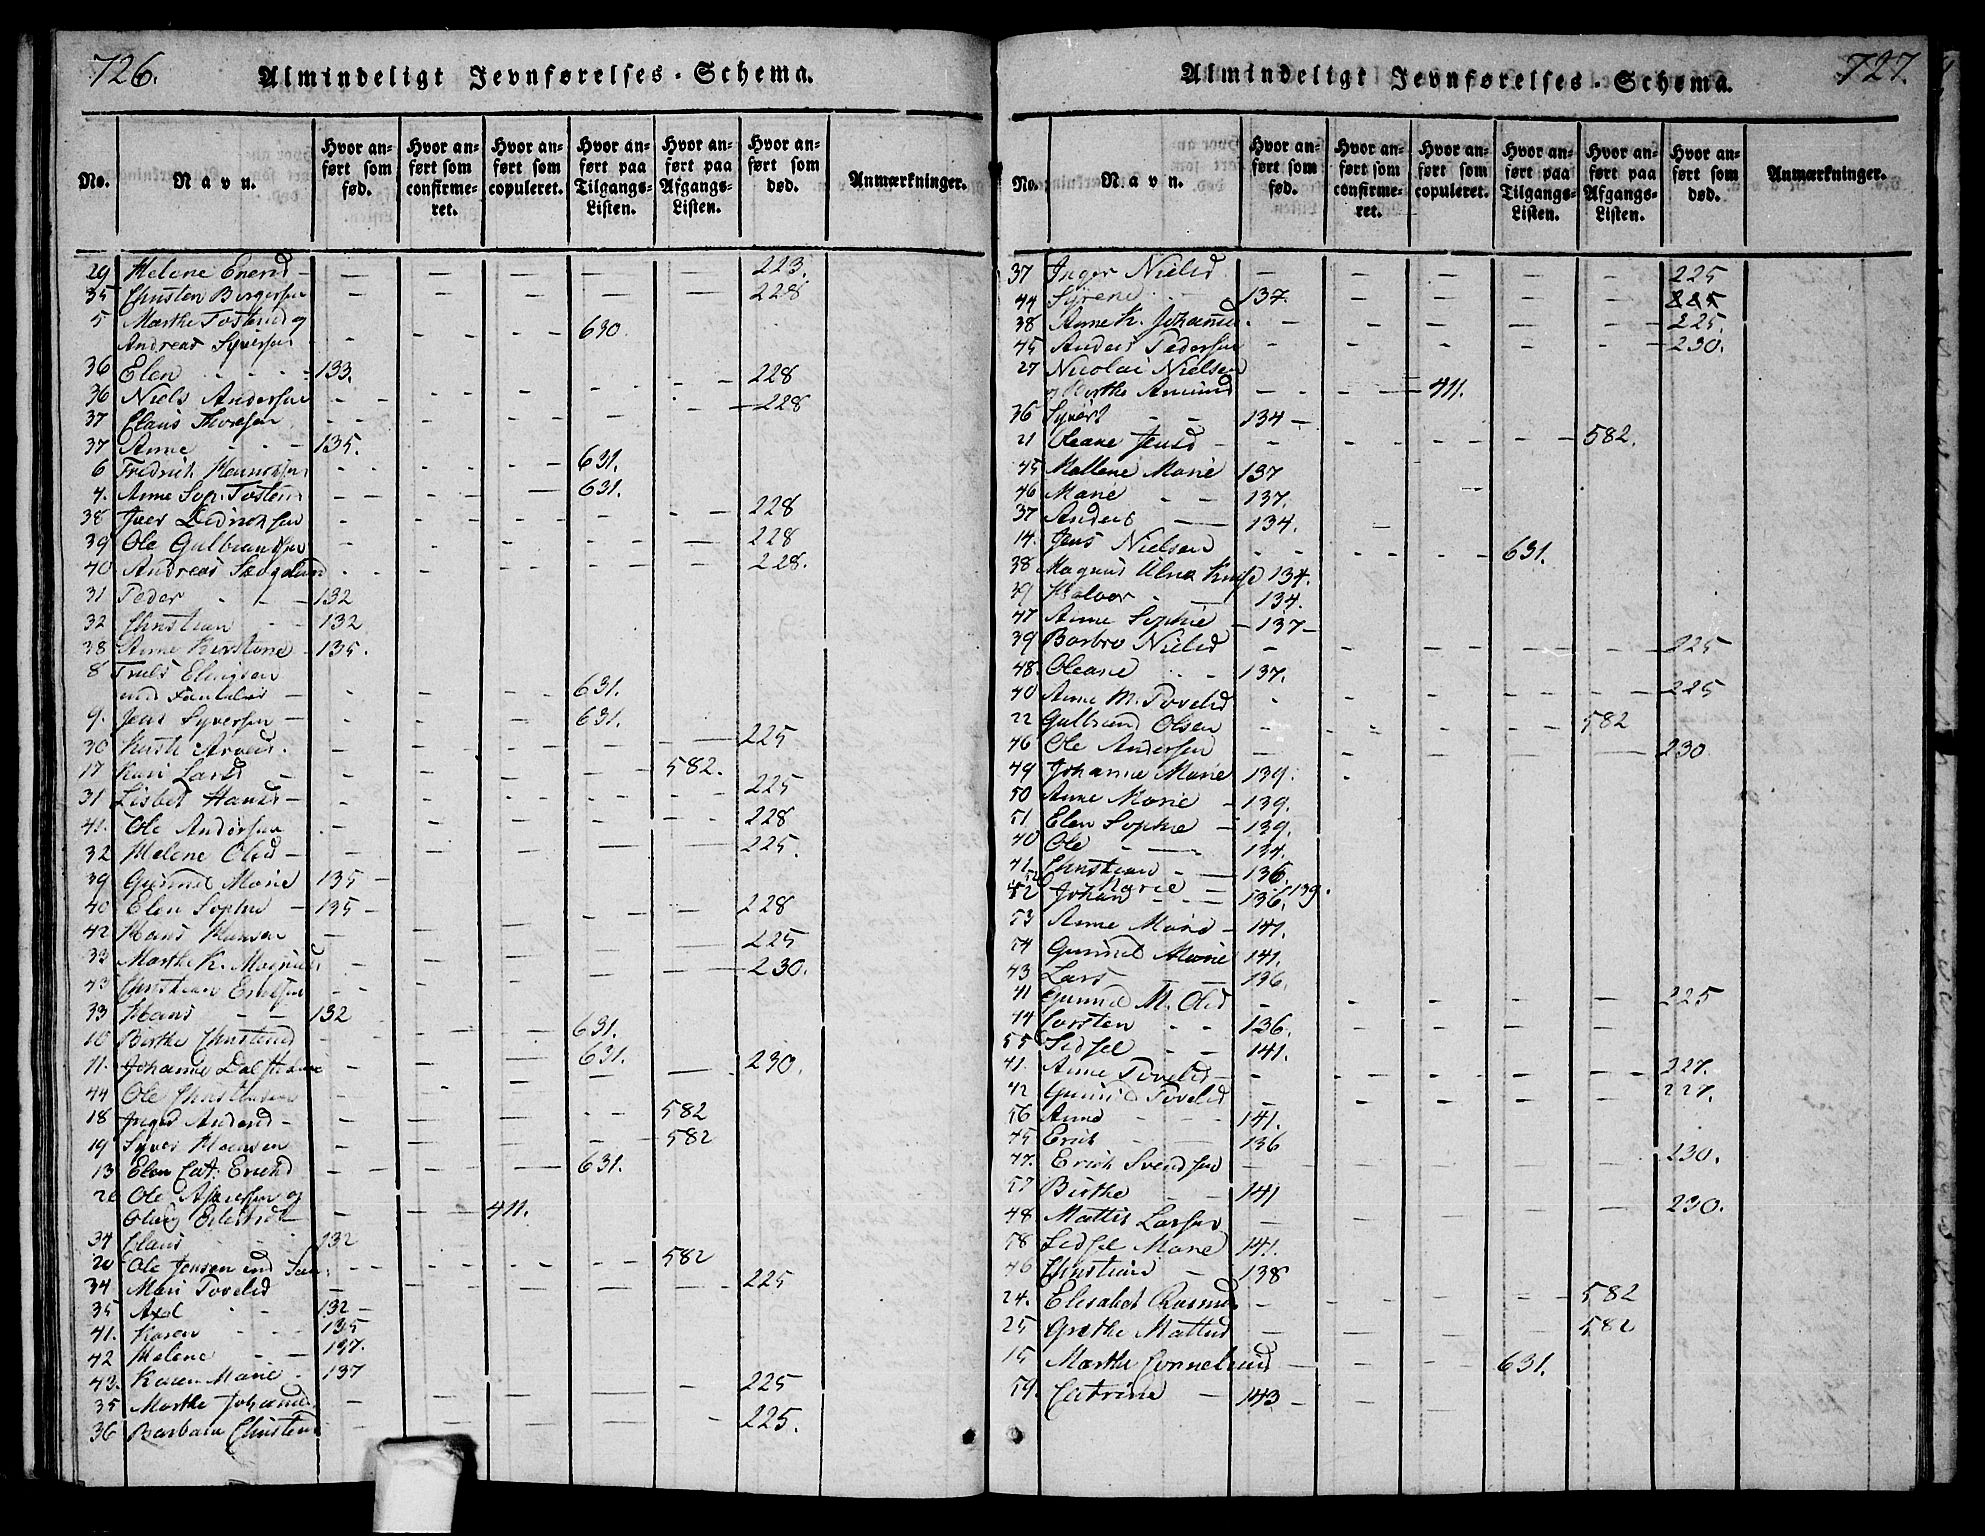 726.
Almindeligt Jevnførelses-Schema.
No. Navn. Hvor anført som fød. Hvor anført som confirmeret. Hvor anført som copuleret. Hvor anført paa Tilgangs-Listen. Hvor anført paa Afgangs-Listen. Hvor anført som død. Anmærkninger.
29 Helene — — — — — 223.
35 Christen Birgersen — — — — — 228
5 Marthe og
Andreas Syversen - - - 630
36 Elen - - - 133.
36 Niels Andersen - - - - - 228
37 Claus Thoresen - - - - - 228
37 Anne - - - 135.
6 Fredrich - - - 631.
4. Anne Sop. - - - 631.
38 Iver - - - - - 228
39 Ole Gulbrandsen - - - - - 228
40 Andreas - - - - - 228.
31 Peder - - - 132
32 Christian - - 132
38 Anne Kirstine - 135.
8 Truls Elingsen
med Familie - - - - 631.
9. Jens Syversen - - - - 631.
30 - - - - - 225
17 Kari Larsd - - - - 582.
31 Lisbet Hansd - - - - - 225
41. Ole Andersen - - - - - 228
32 Helene Olsd - - - - - 225.
39 Gunnild Marie 135 -
40 Elen Sophie - 135 -
42 Hans Hansen - - - - - 228
33 Marthe K. Magnusd - - - - - 225
43 Christian - - - - - 230.
33 Hans - - 132
10 Birthe Christensd - - - 631.
11. Johannes - - - 631.
44 Ole Christensen - - - - - 230.
18 Inger Andersd - - - - 582
19 Syver Hansen - - - - 582
13 Elen Cat. Erichsd - - - 631.
26 Ole og
- - 411.
34 Claus - - 132
20 Ole Jensen - - - - 582
34 Mari Povelsd - - - - - 225
35 Axel - - 132 -
41. Karen - - - 135
42 Helene - - 137.
43. Karen Marie - 137
35 Marthe Johannesd - - - - - 225
36 Barbara Christens - - - - - 225.
727.
Almindeligt Jevnførelses-Schema.
No. Navn. Hvor anført som fød. Hvor anført som confirmeret. Hvor anført som copuleret. Hvor anført paa Tilgangs-Listen. Hvor anført paa Afgangs-Listen. Hvor anført som død. Anmærkninger.
37 Inger Nielsd - - - - - 225
44 Syrene - - 137.
38 Anne K. - - - - - 225.
45 Anders Pedersen - - - - - 230.
27 Nicolai Nielsen
og Birthe Amund - - 411.
36 Syvert - - 134 -
21 Oleane Jensd - - - - 582.
45 Mallene Marie 137
46 Marie - - 137.
37 Anders - 134.
14. Jens Nielsen - - - - 631.
38 Magnus 134.
39 Halvor - - 134.
47 Anne Sophie - 137 -
39 Barbro Nielsd - - - - - 225
48. Oleane - - 137.
40 Anne M. Povelsd - - - - - 225
22 Gulbrand Olsen - - - - 582
46 Ole Andersen - - - - - 230
49 Johanne Marie 139.
50 Anne Marie - 139.
51 Elen Sophie - 139.
40 Ole - - 134.
41. Christian - - 136.
52 Marie 139.
42 Johan - - - 136.
53 Anne Marie - 141.
54 Gunnild Marie 141.
43 Lars - 136.
41 Gunnild M. Olsd - - - - - 225
44 Torsten - - 136.
55 Sidsel - - 141.
41. Anne Povelsd - - - - - 227.
42 Gunnild Povelsd - - - - - 227.
56 Anne - - 141.
45 Erich - - 136
47. Erich Svendsen - - - - - 230.
57 Birthe - - 141
48 Mattis Larsen - - - - - 230.
58 Sidsel Marie 141.
46 Christian - 138
24. Elisabet Rasmus - - - - 582
25 Grethe Mattisd - - - - 582
15 Marthe Corneliusd - - - 631.
59. Catrine - 143